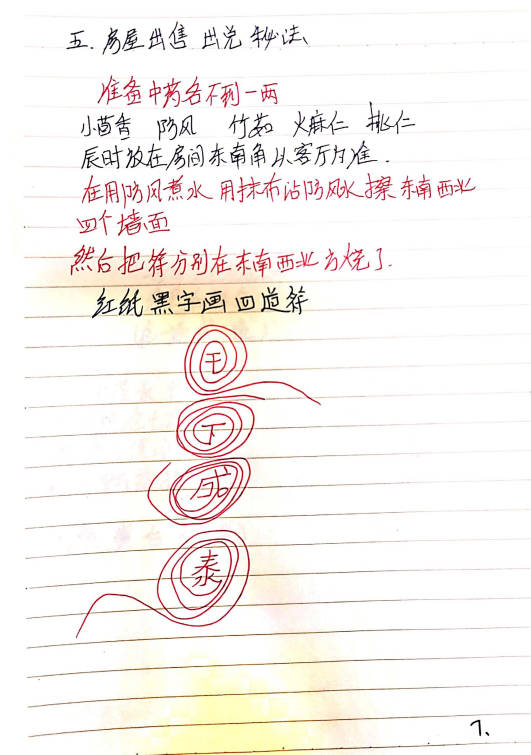 五.房屋出售 出兑秘法
准备中药各不到一两
小茴香 防风 竹茹 火麻仁 桃仁
辰时放在房间东南角从客厅为准.
在用防风煮水 用抹布沾防风水擦 东南西北
四个墙面
然后把符分别在东南西北方烧了.
红纸黑字画四道符
王
下
泰
7、